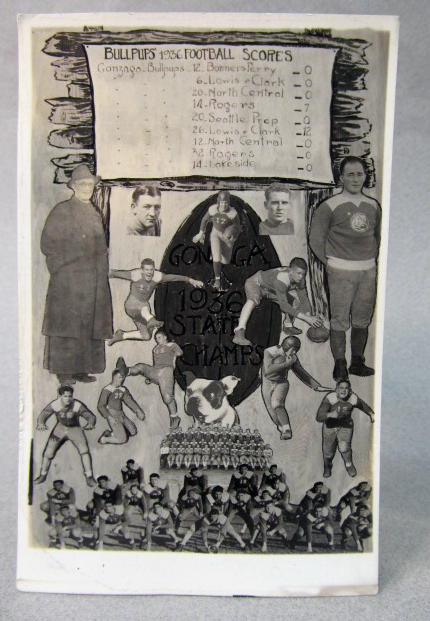 BULLPUPS 1936 FOOTBALL SCORES
Gonzaga-Bullpups-12-Bonners Ferry -0
6-Lewis & Clark -0
20-North Central -0
14-Rogers -7
20-Seattle Prep -0
26-Lewis & Clark -12
12-North Central -0
32-Rogers -0
14-Lakeside -0
GONZAGA
1936
STATE
CHAMPS